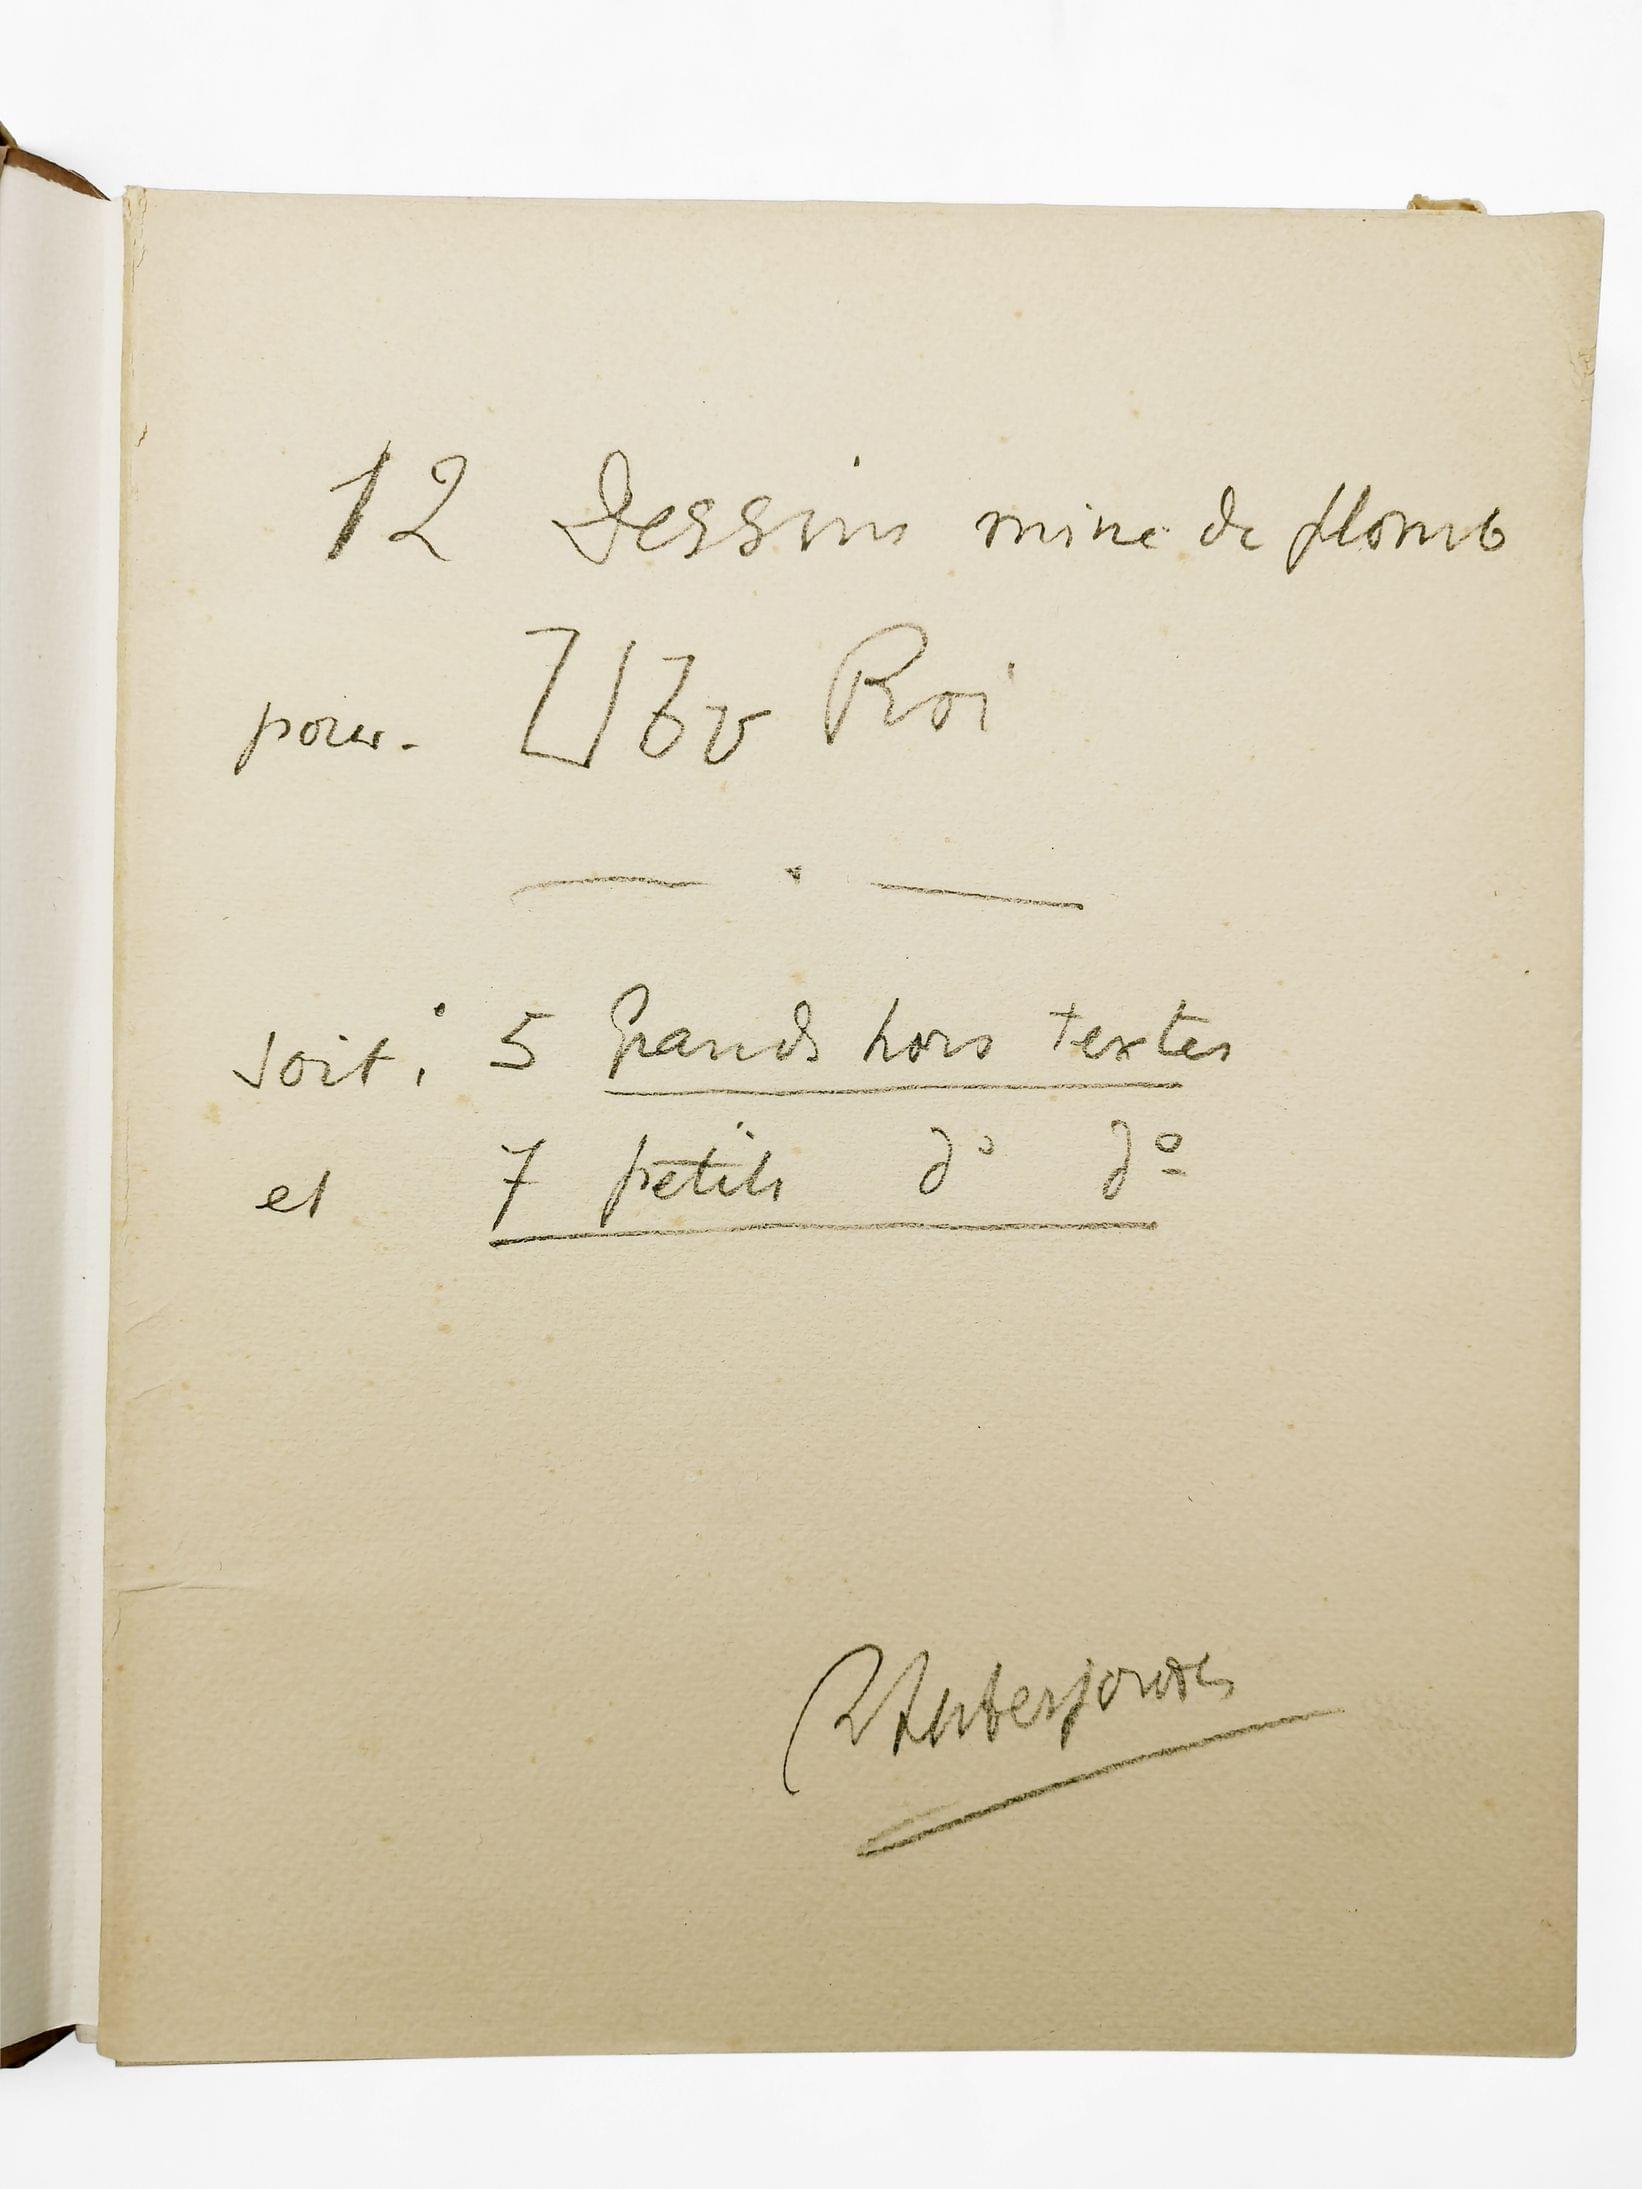 12 Dessins mine de plomb
pour. Ubu Roi
— . —
soit : 5 Grands hors textes
et 7 petits do do
RAuberjonois